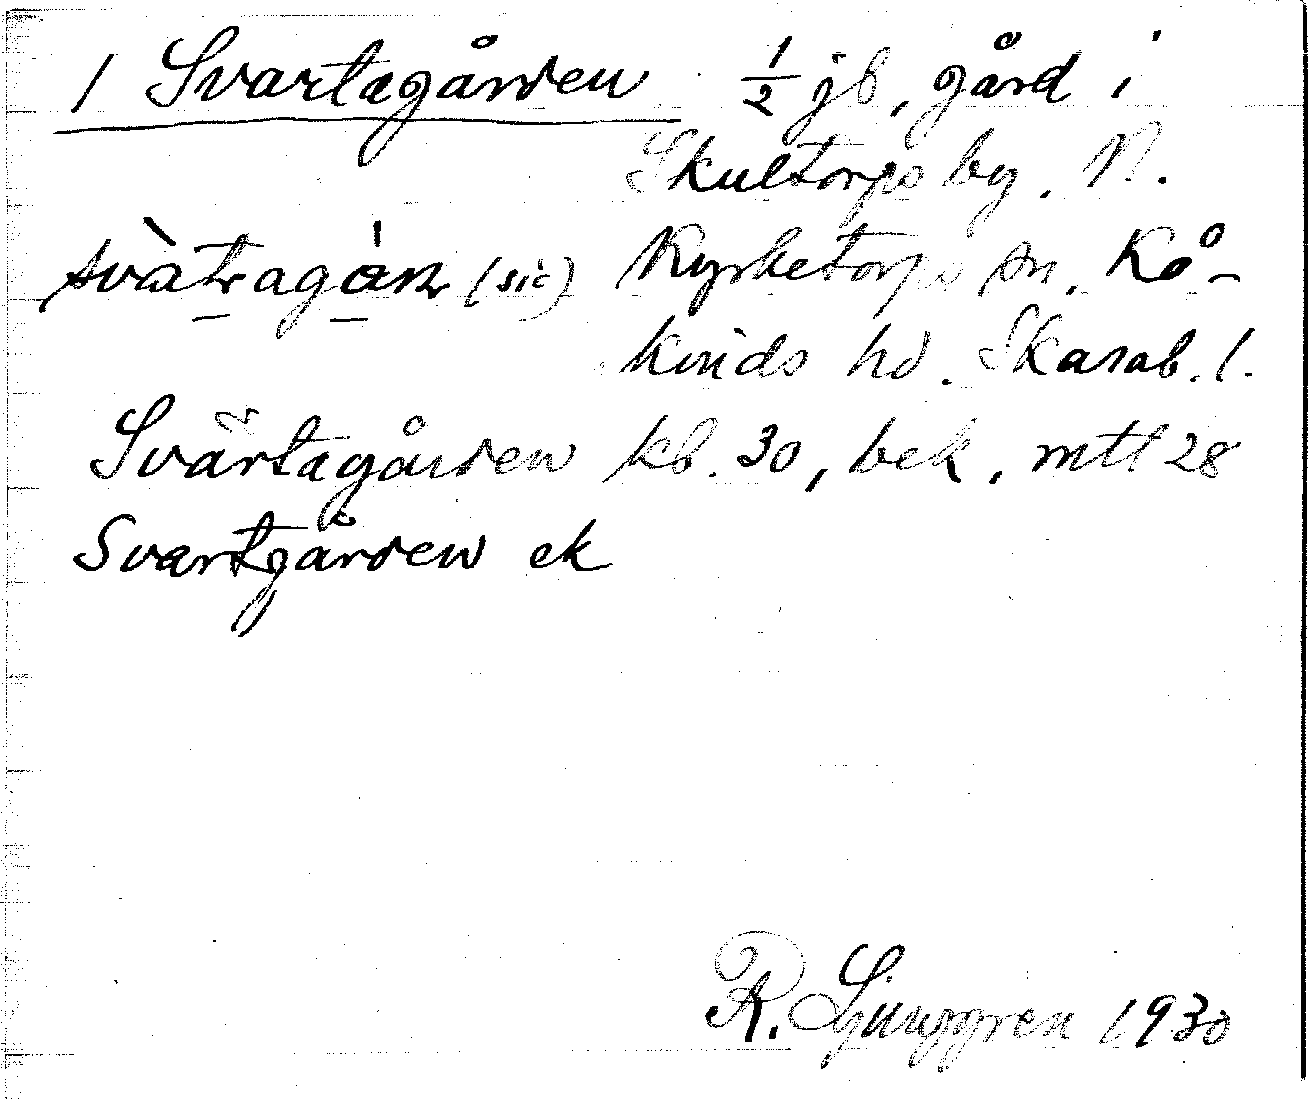 1 Svartagården ½ jb, gård i
Skultorps by. N.
svàtragán (sic) Kyrketorps sn. Kå-
kinds hd. Skarab. l.
Svärtagården kb. 30, bek, mtl 28
Svartgården ek
R. Ljunggren 1930